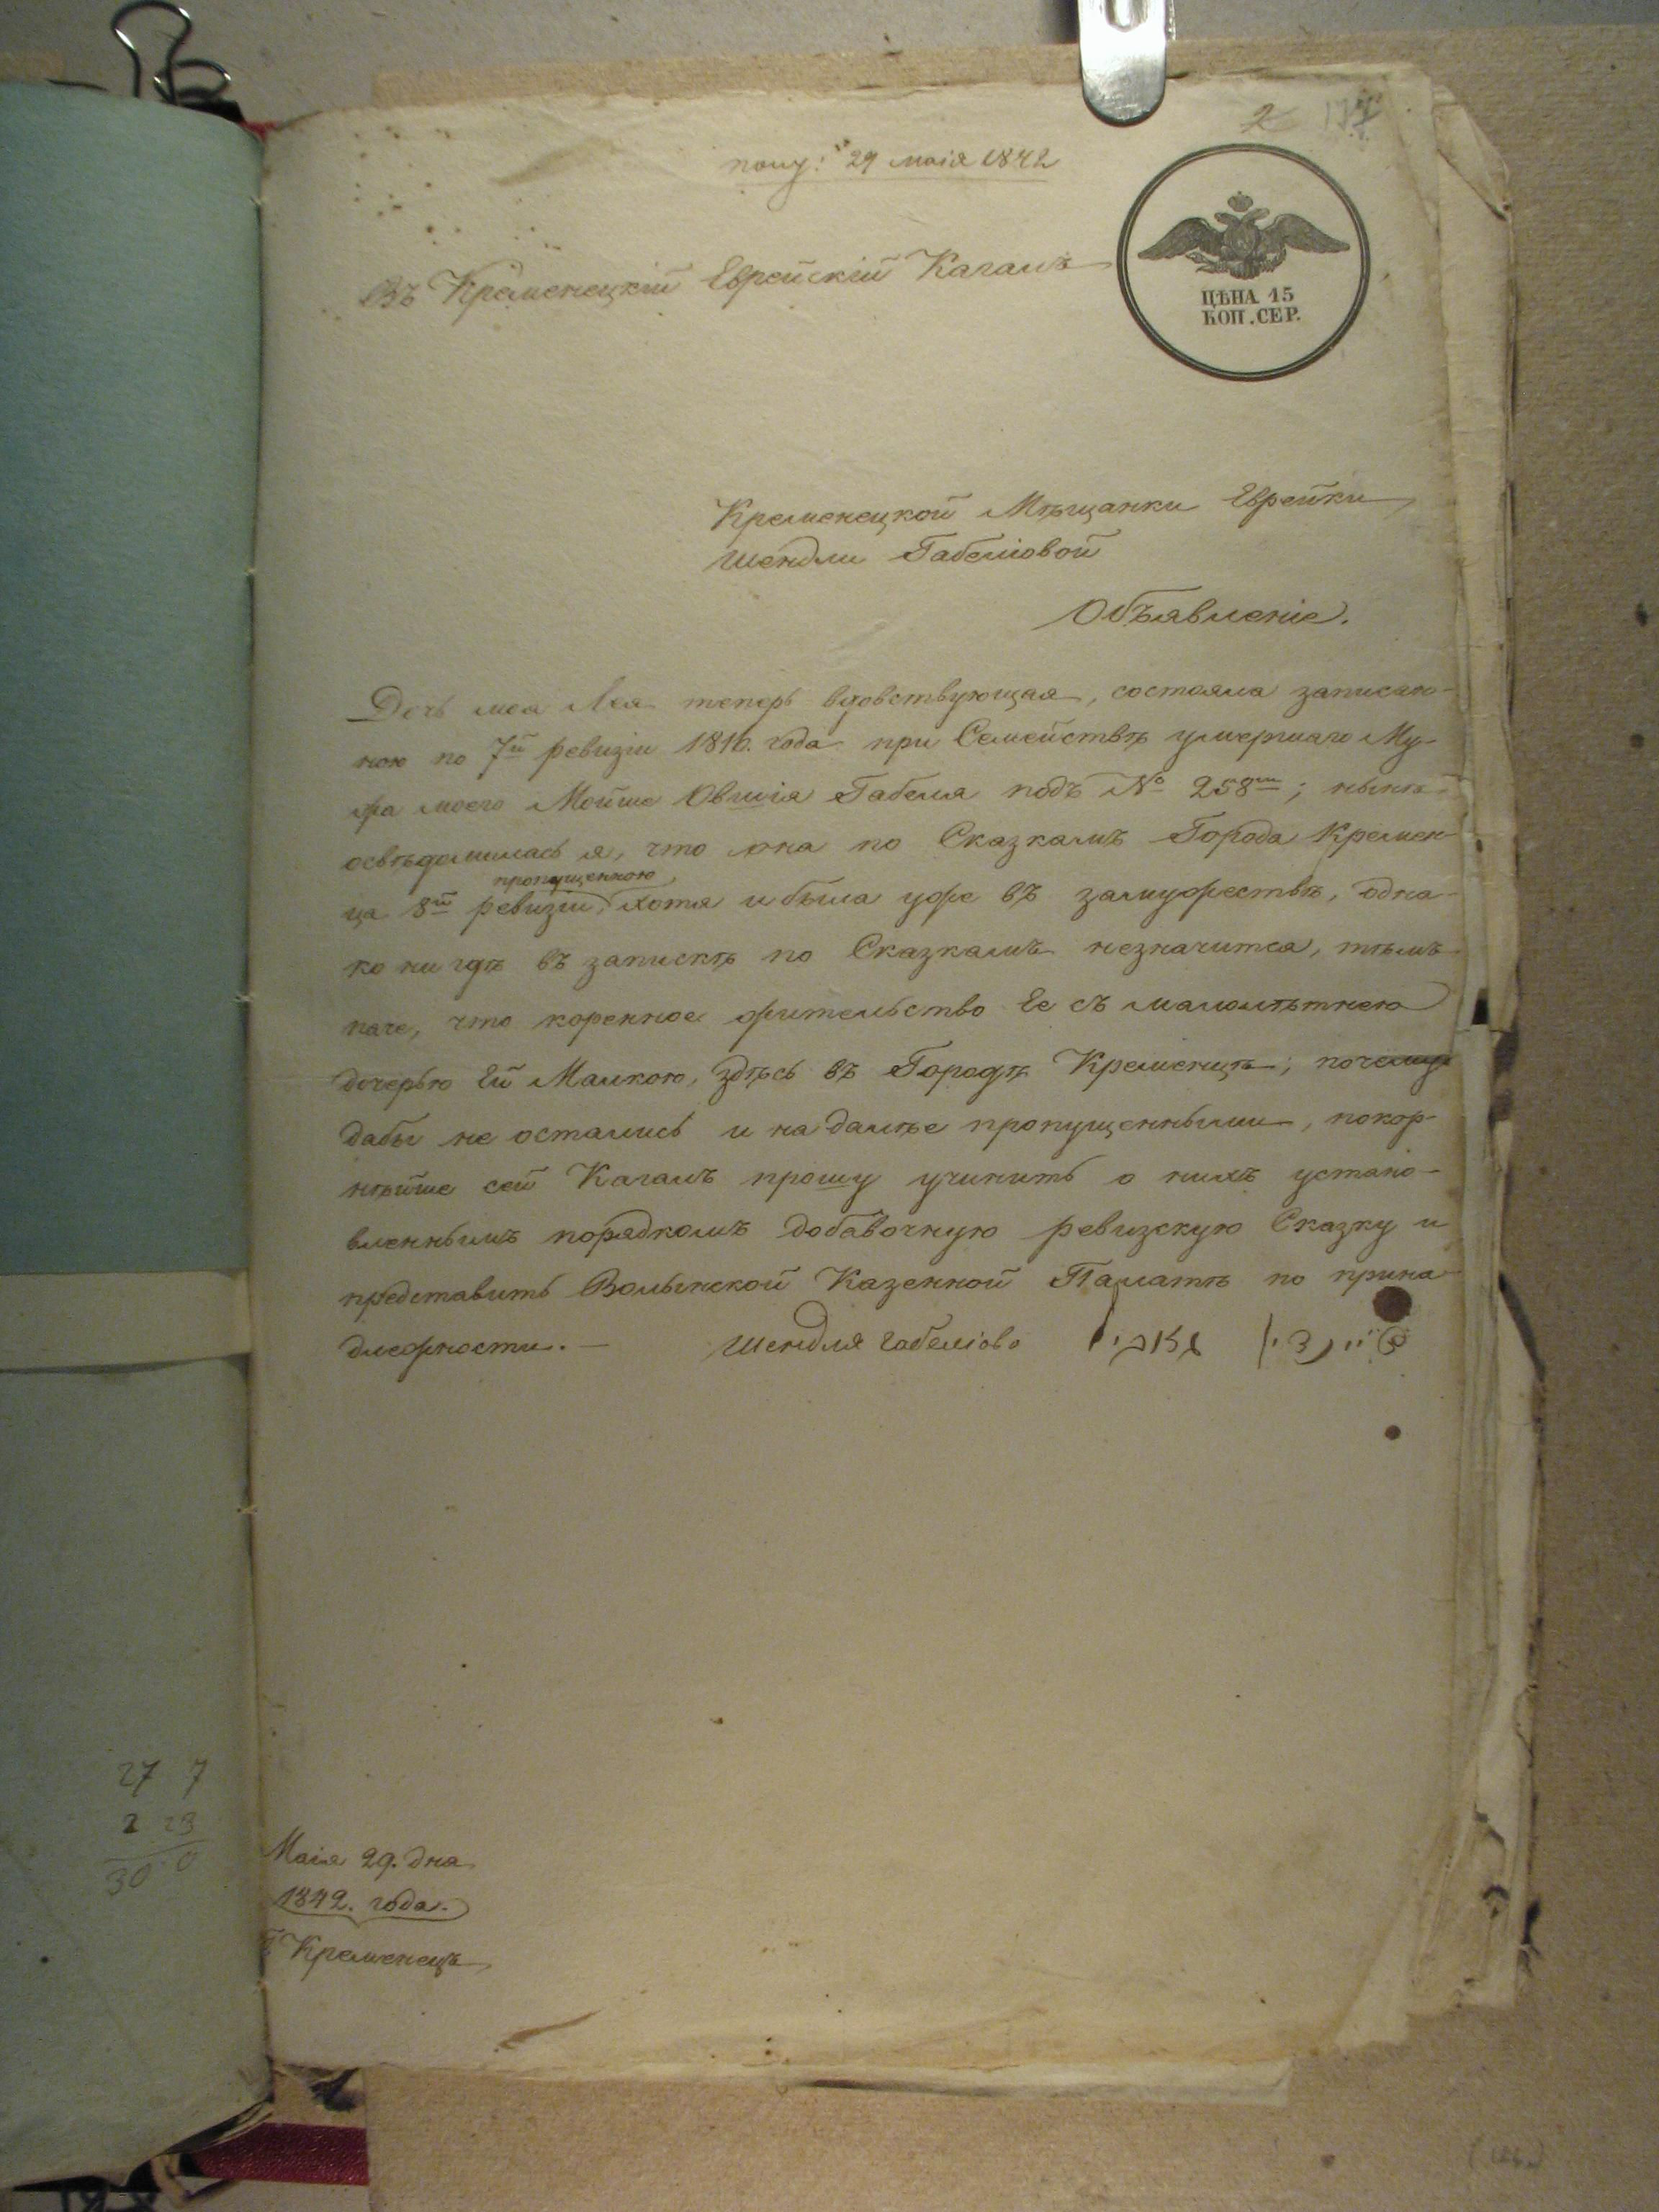 2
полу: 29 маія 1842
ЦѢНА 15
КОП. СЕР.
Въ Кременецкій Еврейскій Кагалъ
Кременецкой Мѣщанки Еврейки
Шендли Габеліовой
Объявленіе.
Дочь моя Лея теперь вдовствующая, состояла записан-
ною по 7й ревизіи 1816. года при Семействѣ умершаго Му-
жа моего Мойше Овшія Габеля подъ № 258м; нынѣ
освѣдомилась я, что она по Сказкамъ Города Кремен-
пропущенною
ца 8й ревизіи, хотя и была уже въ замужествѣ, одна-
ко ни гдѣ въ запискѣ по Сказкамъ незначится, тѣмъ
паче, что коренное жительство Ее съ малолѣтнею
дочерью Ей Малкою, здѣсь въ Городѣ Кременцѣ; почему
дабы не остались и на далѣе пропущенными, покор-
нѣйше сей Кагалъ прошу учинить о нихъ устано-
вленнымъ порядкомъ добавочную ревизскую Сказку и
представить Волынской Казенной Палатѣ по прина-
длежности. — Шендля Габеліова
27 7
2 23
30 0
Маія 29. дня
1842. года.
Кременецъ